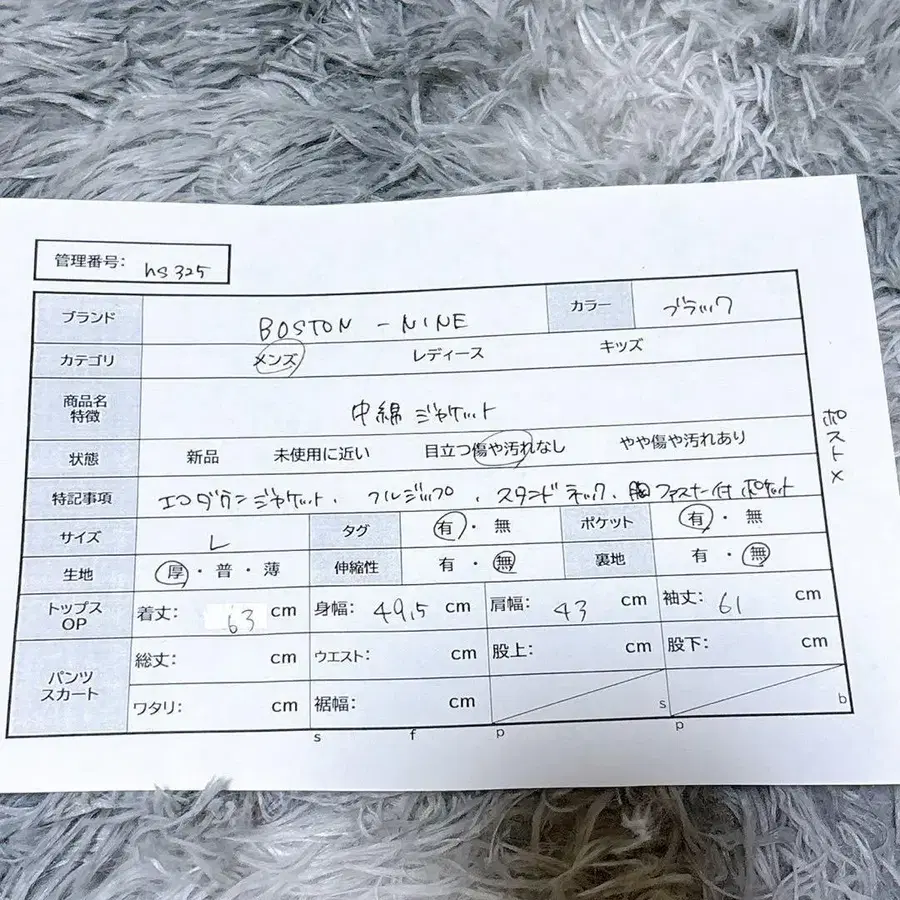 管理番号: hs325
ブランド BOSTON - NINE カラー ブラック
カテゴリ メンズ レディース キッズ
商品名 特徴 中綿ジャケット
状態 新品 未使用に近い 目立つ傷や汚れなし やや傷や汚れあり
特記事項 エコダウンジャケット、フルジップ、スタンドネック、胸ファスナー付ポケット
サイズ L タグ 有・無 ポケット 有・無
生地 厚・普・薄 伸縮性 有・無 裏地 有・無
トップス OP 着丈: 63 cm 身幅: 49,5 cm 肩幅: 43 cm 袖丈: 61 cm
パンツ スカート 総丈: cm ウエスト: cm 股上: cm 股下: cm
ワタリ: cm 裾幅: cm s b
s f p p
ポスト×